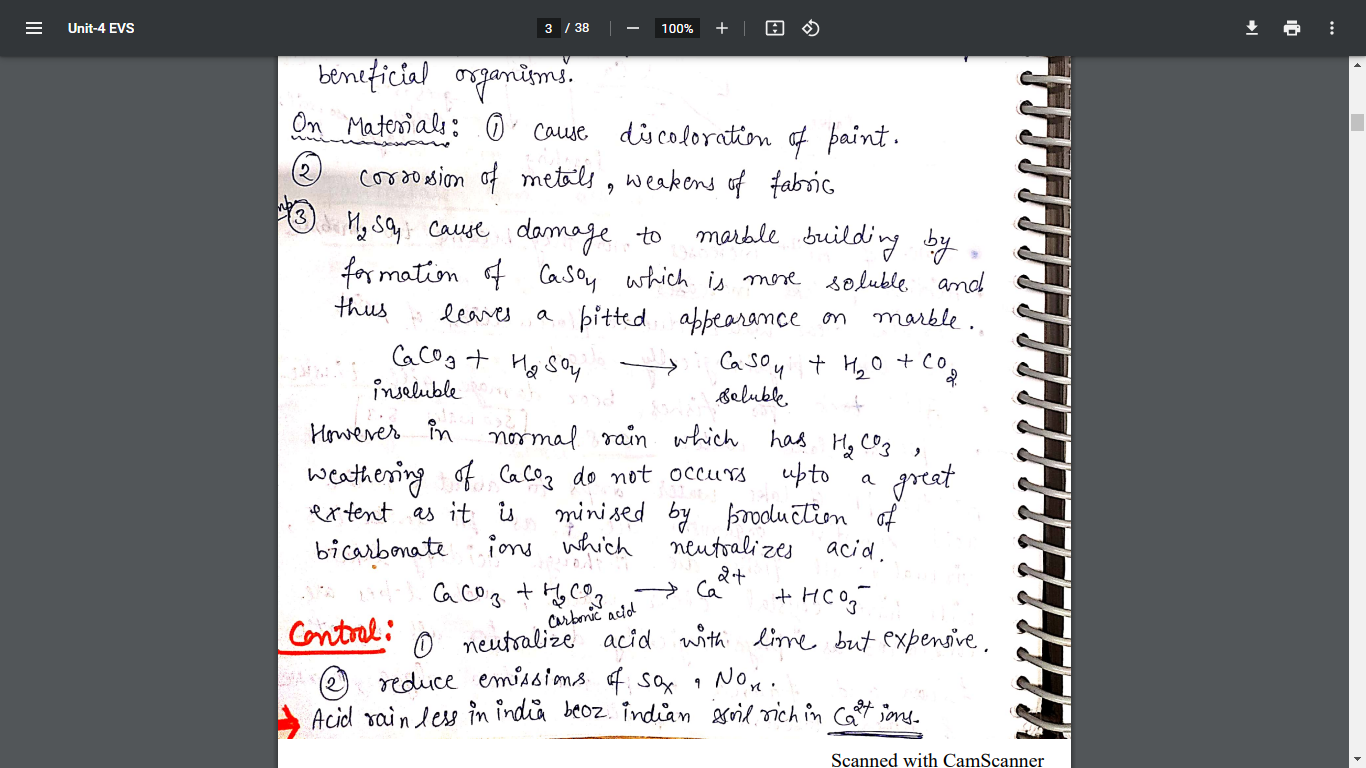 Unit-4 EVS
3 / 38
100%
beneficial organisms.
On Materials: ① cause discoloration of paint.
② corrosion of metals, weakens of fabric
imp ③ H₂SO₄ cause damage to marble building by
formation of CaSO₄ which is more soluble and
thus leaves a pitted appearance on marble.
CaCO₃ + H₂SO₄ → CaSO₄ + H₂O + CO₂
insoluble soluble
However in normal rain which has H₂CO₃,
weathering of CaCO₃ do not occurs upto a great
extent as it is minised by production of
bicarbonate ions which neutralizes acid.
CaCO₃ + H₂CO₃ → Ca²⁺ + HCO₃⁻
carbonic acid
Control: ① neutralize acid with lime but expensive.
② reduce emissions of SOx, NOx.
→ Acid rain less in india bcoz indian soil rich in Ca²⁺ ions.
Scanned with CamScanner